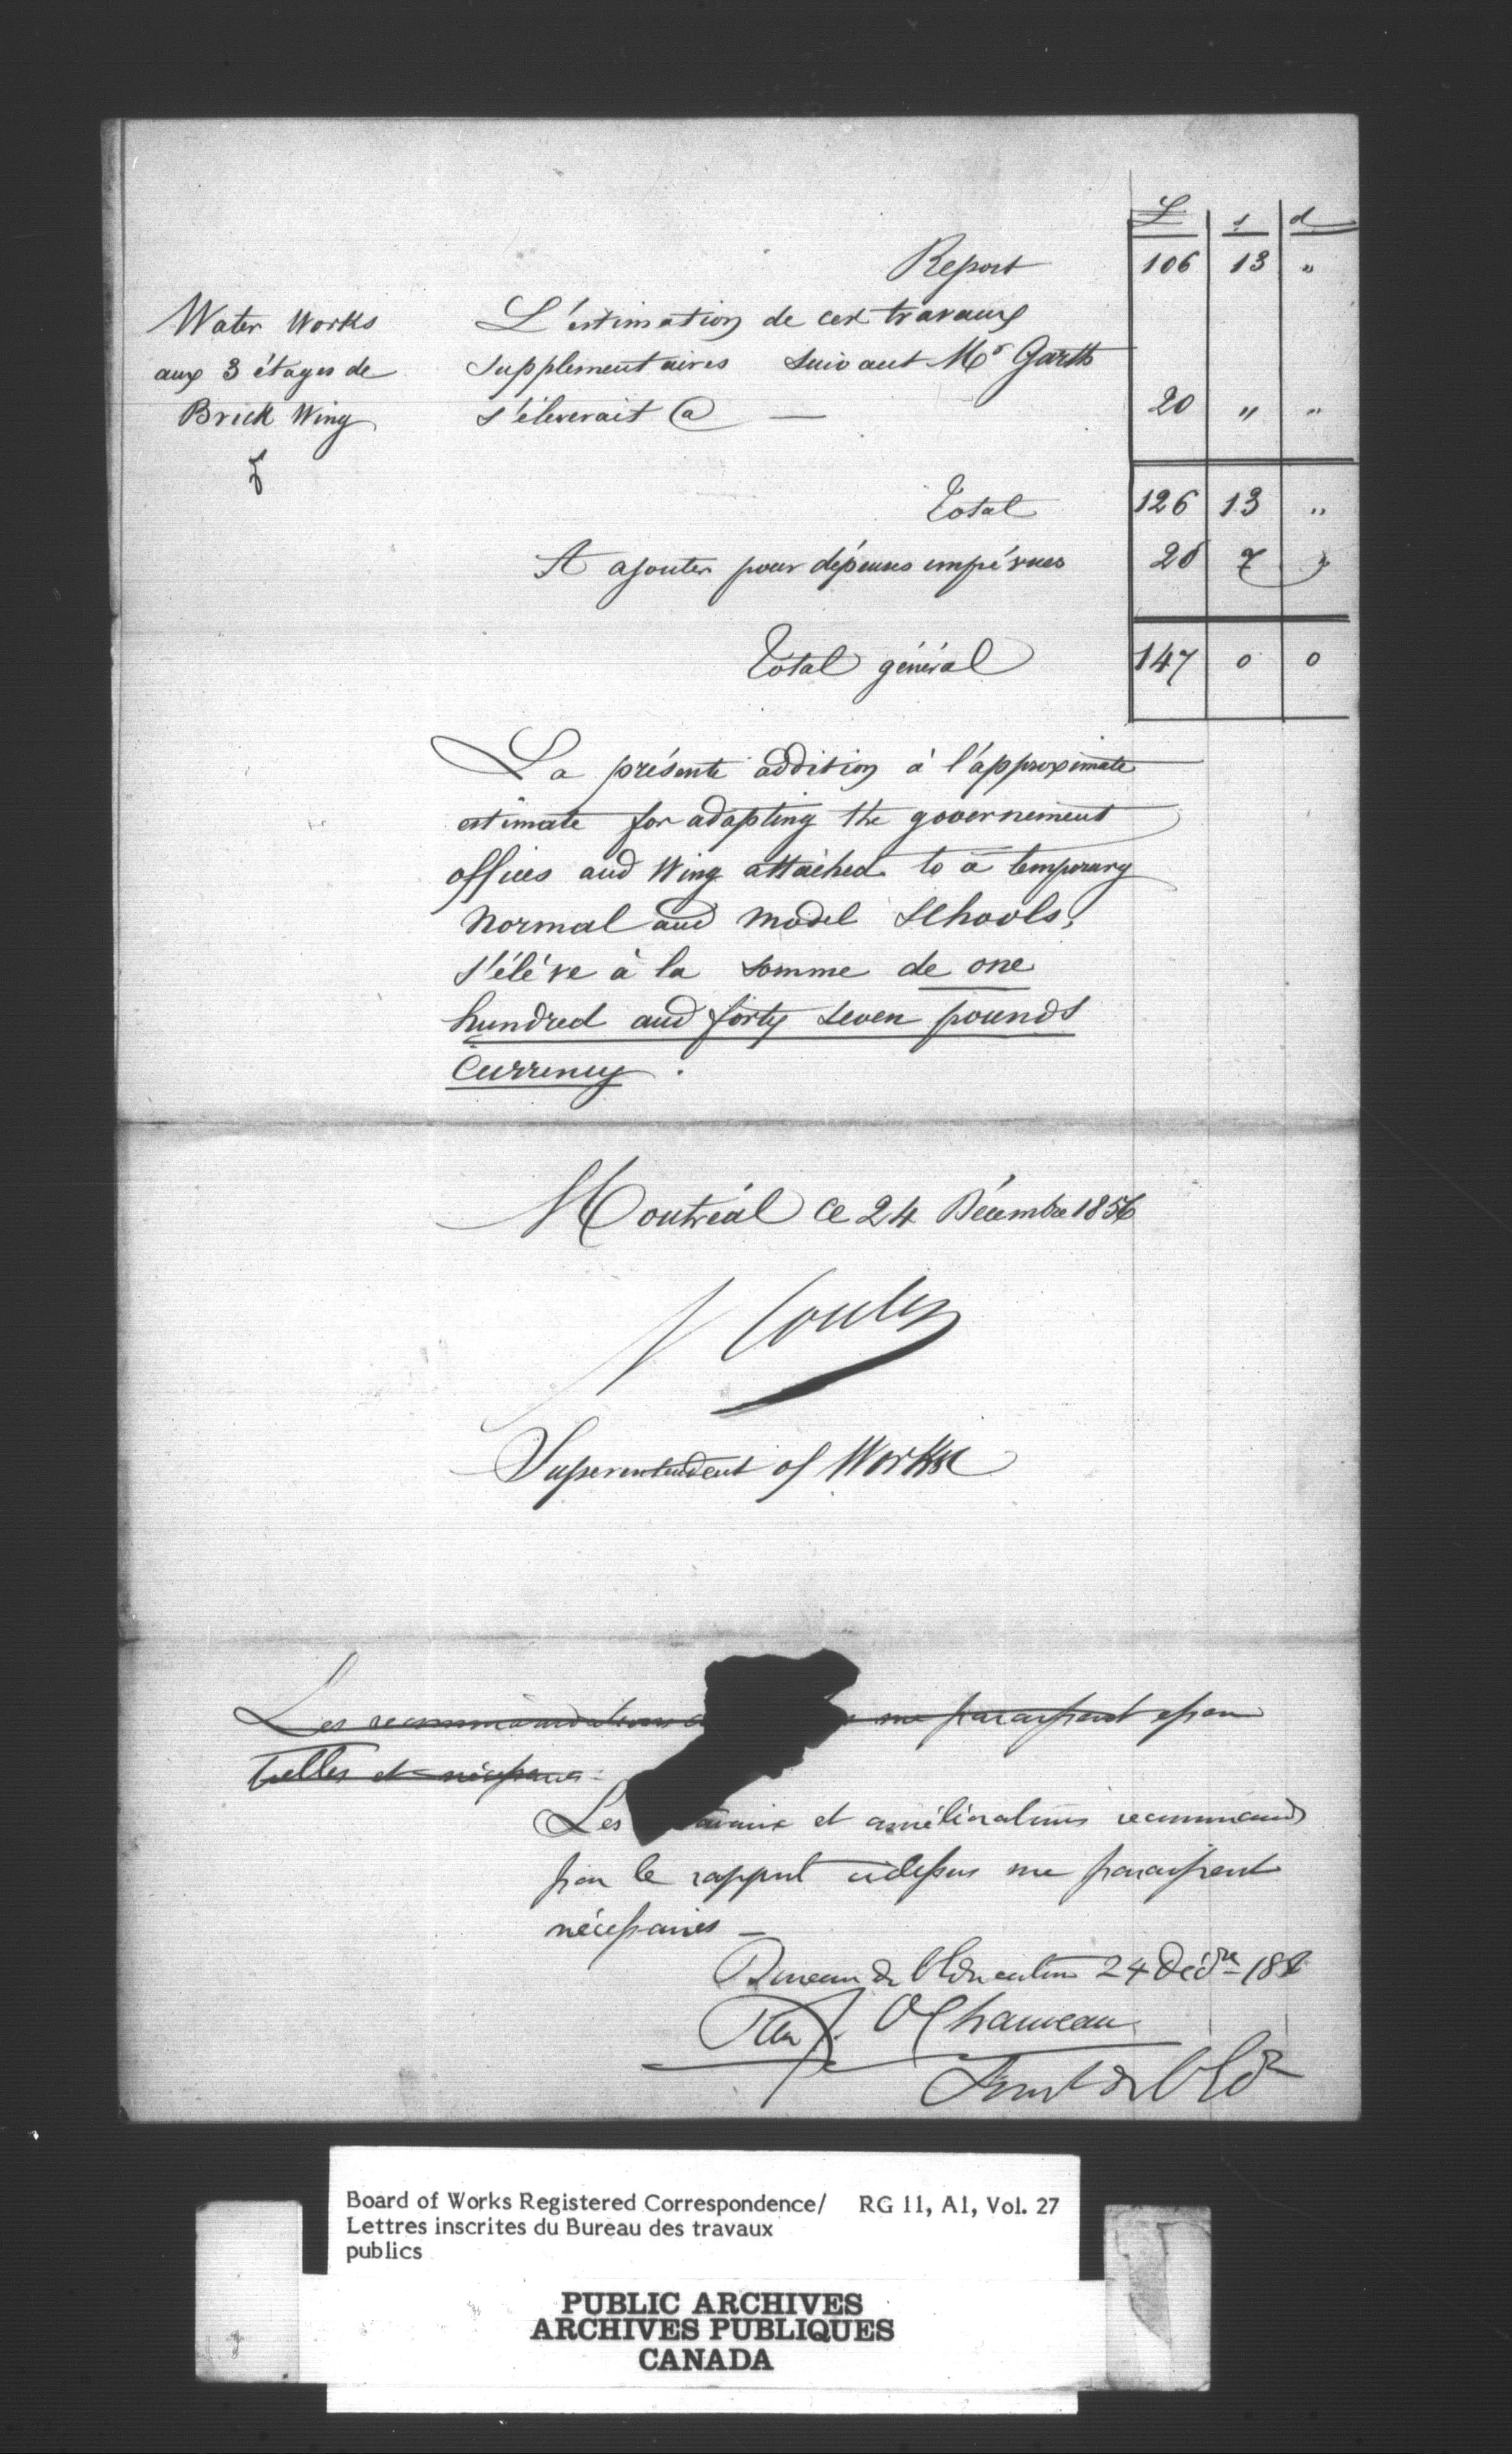 £ s d
Report 106 13 "
Water Works
aux 3 étages de
Brick Wing
L'estimation de ces travaux
supplementaires suivant Mr Garth
s'éleverait @ — 20 " "
Total 126 13 "
A ajouter pour dépenses impévues 20 7 "
Total général 147 0 0
La présente addition à l'approximate
estimate for adapting the governement
offices and Wing attached to a temporary
Normal and Model Schools,
s'élève à la somme de one
hundred and forty seven pounds
Currency.
Montréal ce 24 Décembre 1856
Superentendent of Works
Les recommandations me paraissent essen
tielles et nécessaires.
Les travaux et améliorations recommandés
par le rapport cidessus me paraissent
nécessaires —
Bureau de l'Education 24 Décbre 185
Pierre J. O Chauveau
Surt de l'Edn
Board of Works Registered Correspondence/ RG 11, A1, Vol. 27
Lettres inscrites du Bureau des travaux
publics
PUBLIC ARCHIVES
ARCHIVES PUBLIQUES
CANADA